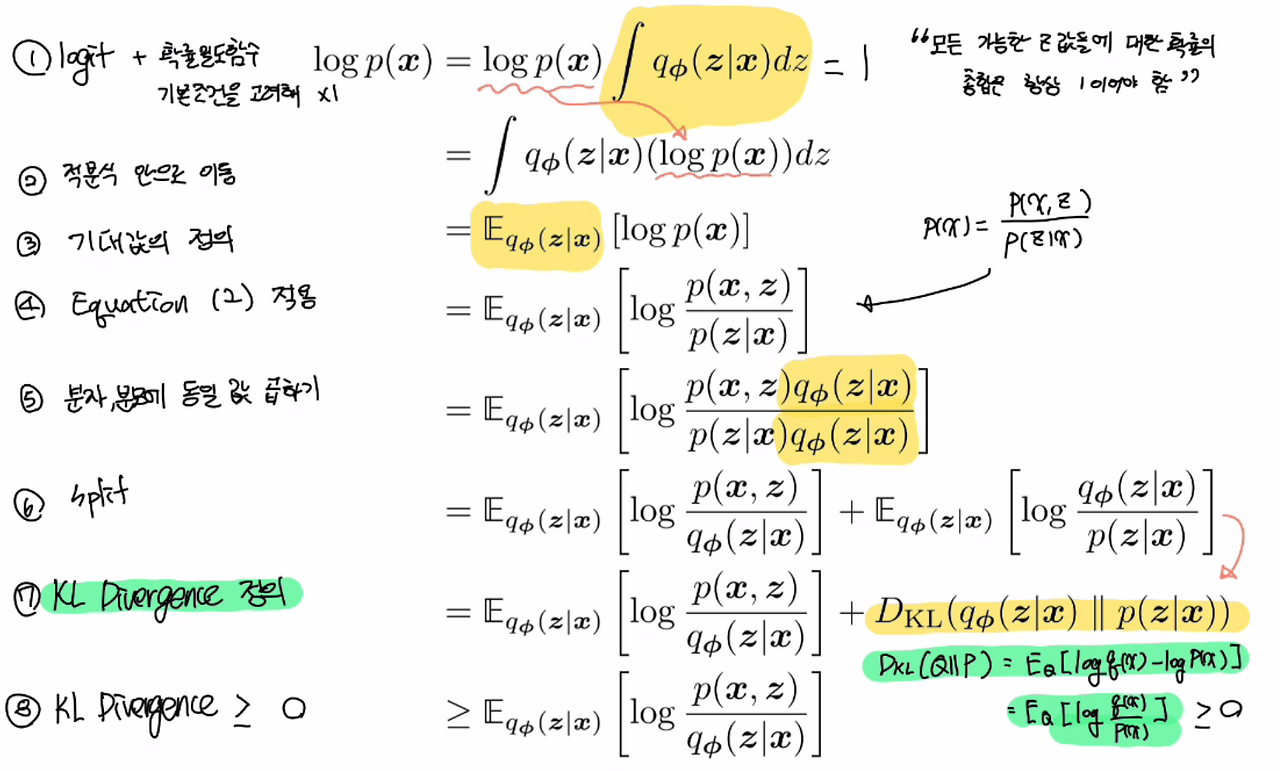 ① logit + 확률밀도함수 log p(x) = log p(x) ∫ q_ϕ(z|x)dz = 1 “모든 가능한 z값들에 대한 확률의
기본조건을 고려해 x1 총합은 항상 1이어야 함”
② 적분식 안으로 이동 = ∫ q_ϕ(z|x)(log p(x))dz
③ 기대값의 정의 = 𝔼_{q_ϕ(z|x)} [log p(x)] P(x) = P(x, z) / P(z|x)
④ Equation (2) 적용 = 𝔼_{q_ϕ(z|x)} [log p(x, z) / p(z|x)]
⑤ 분자,분모에 동일 값 곱하기 = 𝔼_{q_ϕ(z|x)} [log p(x, z)q_ϕ(z|x) / p(z|x)q_ϕ(z|x)]
⑥ split = 𝔼_{q_ϕ(z|x)} [log p(x, z) / q_ϕ(z|x)] + 𝔼_{q_ϕ(z|x)} [log q_ϕ(z|x) / p(z|x)]
⑦ KL Divergence 정의 = 𝔼_{q_ϕ(z|x)} [log p(x, z) / q_ϕ(z|x)] + D_KL(q_ϕ(z|x) ∥ p(z|x))
D_KL(Q||P) = E_Q[log q(x) - log P(x)]
⑧ KL Divergence ≥ 0 ≥ 𝔼_{q_ϕ(z|x)} [log p(x, z) / q_ϕ(z|x)] = E_Q[log q(x) / P(x)] ≥ 0